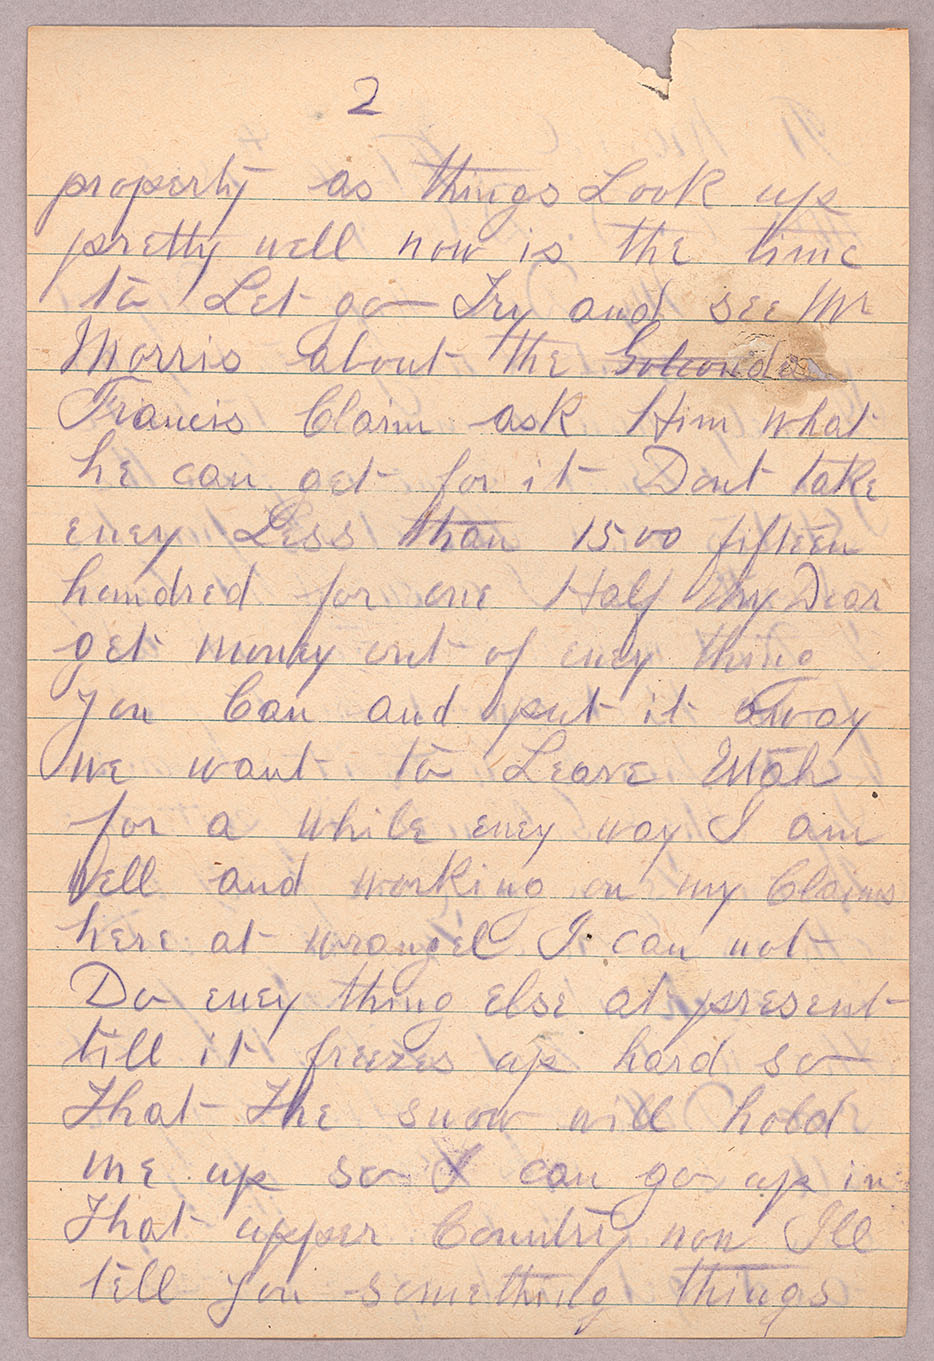 2
property as things Look up
pretty well now is the time
to Let go Try and see Mr
Morris about the
Francis Claim ask Him what
he can get for it Dont take
eney Less than 1500 fifteen
hundred for one Half My Dear
get money out of eney thing
you Can and put it away
we want to Leave Utah
for a while eney way I am
Well and working on my Claims
here at wrangel I can not
Do eney thing else at present
till it freezes up hard so
That The snow will hold
me up so I can go up in
That upper Country now Ill
tell you something things